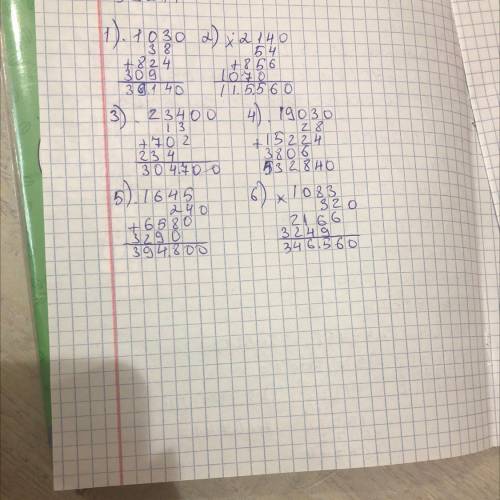 1) . 1030 2) x 2140
38 54
+824 +856
309 1070
39140 115560
3) . 23400 4) . 19030
13 28
+702 +15224
234 3806
304.700 532840
5) . 1645 6) x 1083
240 320
+6580 2166
3290 3249
394.800 346.560